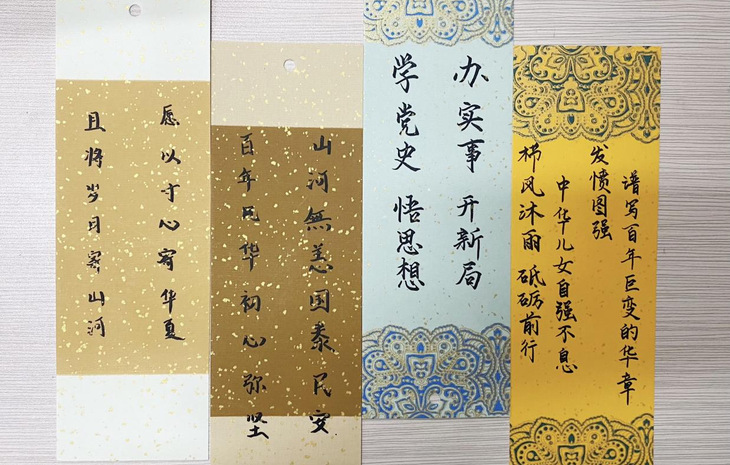 愿以寸心寄华夏
且将岁月寄山河
山河無恙国泰民安
百年风华初心弥坚
学党史 悟思想
办实事 开新局
栉风沐雨 砥砺前行
中华儿女自强不息
发愤图强
谱写百年巨变的华章